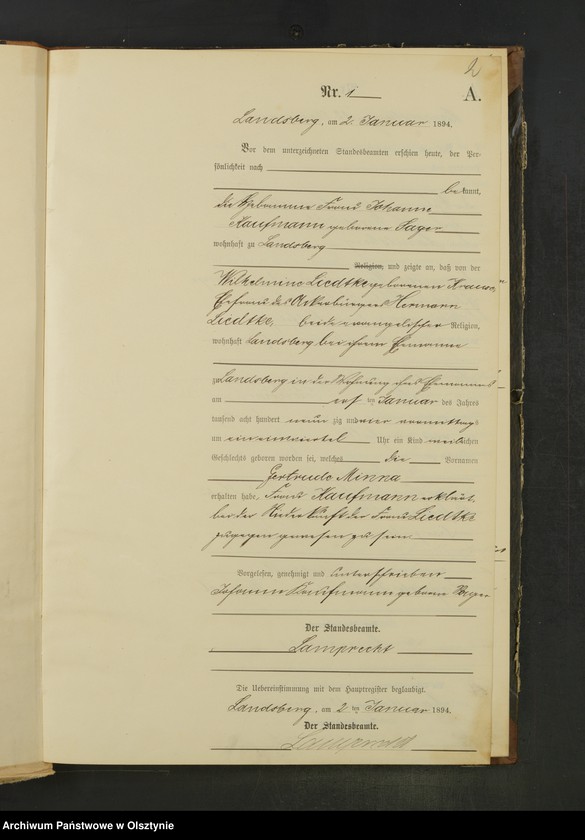 2
Nr. 1
A.
Landsberg, am 2. Januar 1894.
Vor dem unterzeichneten Standesbeamten erschien heute, der Per-
sönlichkeit nach
bekannt,
die Hebamme Frau Johanne
Kaufmann geborene Sager
wohnhaft zu Landsberg
Religion, und zeigte an, daß von der
Wilhelmine Liedtke geborenen
Ehefrau des Ackerbürgers Hermann
Liedtke, beide evangelischer Religion,
wohnhaft Landsberg bei ihrem Ehemanne
zu Landsberg in der Wohnung ihres Ehemannes
am ersten Januar des Jahres
tausend acht hundert neunzig und vier vormittags
um ein einviertel Uhr ein Kind weiblichen
Geschlechts geboren worden sei, welches die Vornamen
Gertrude Minna
erhalten habe. Frau Kaufmann erklärt,
bei der Niederkunft der Frau Liedtke
zugegen gewesen zu sein
Vorgelesen, genehmigt und unterschrieben
Johanne Kaufmann geborene Sager
Der Standesbeamte.
Lamprecht
Die Uebereinstimmung mit dem Hauptregister beglaubigt.
Landsberg, am 2ten Januar 1894.
Der Standesbeamte.
Lamprecht
Archiwum Państwowe w Olsztynie